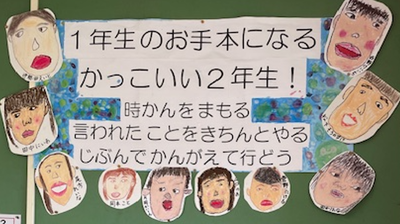 1年生のお手本になる
かっこいい2年生！
時かんをまもる
言われたことをきちんとやる
じぶんでかんがえて行どう